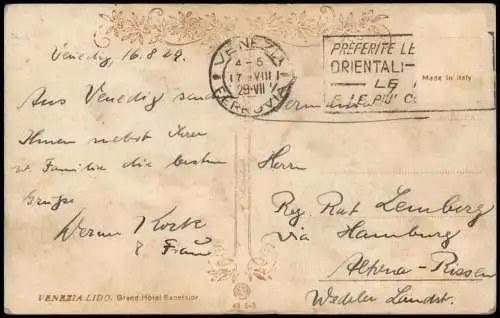 Venedig, 16.8.29.
Aus Venedig sendet
Ihnen nebst Ihrer
w. Familie die besten
Grüße
Werner
& Frau
VENEZIA LIDO. Grand Hôtel Excelsior
VENEZIA
4-5
17 VIII
29-VII
FERROVIA
PREFERITE LE
ORIENTALI
LE
E LE PIÙ
Made in Italy
Herrn
Reg. Rat Lemberg
via Hamburg
Altona-Rissen
Wedeler Landstr.